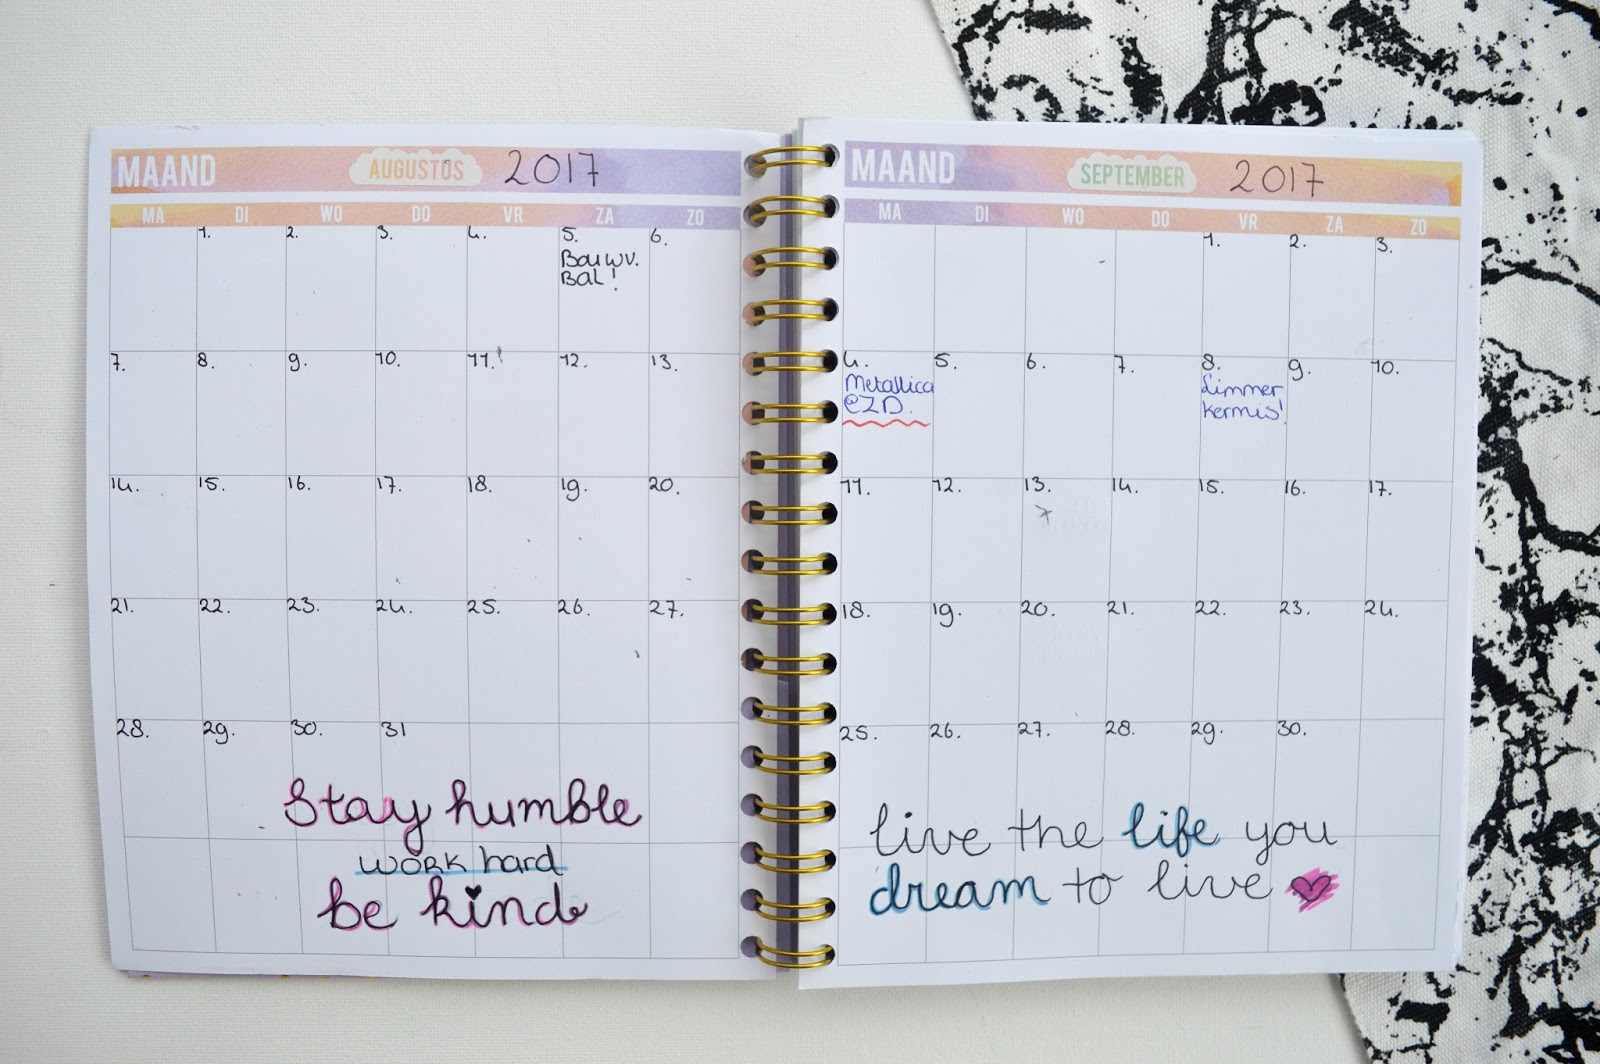 MAAND AUGUSTUS 2017
MA DI WO DO VR ZA ZO
1. 2. 3. 4. 5. 6.
Bouwv.
Bal!
7. 8. 9. 10. 11. 12. 13.
14. 15. 16. 17. 18. 19. 20.
21. 22. 23. 24. 25. 26. 27.
28. 29. 30. 31
Stay humble
work hard
be kind
MAAND SEPTEMBER 2017
MA DI WO DO VR ZA ZO
1. 2. 3.
4. 5. 6. 7. 8. 9. 10.
Metallica
@ZD.
Limmer
kermis!
11. 12. 13. 14. 15. 16. 17.
18. 19. 20. 21. 22. 23. 24.
25. 26. 27. 28. 29. 30.
live the life you
dream to live